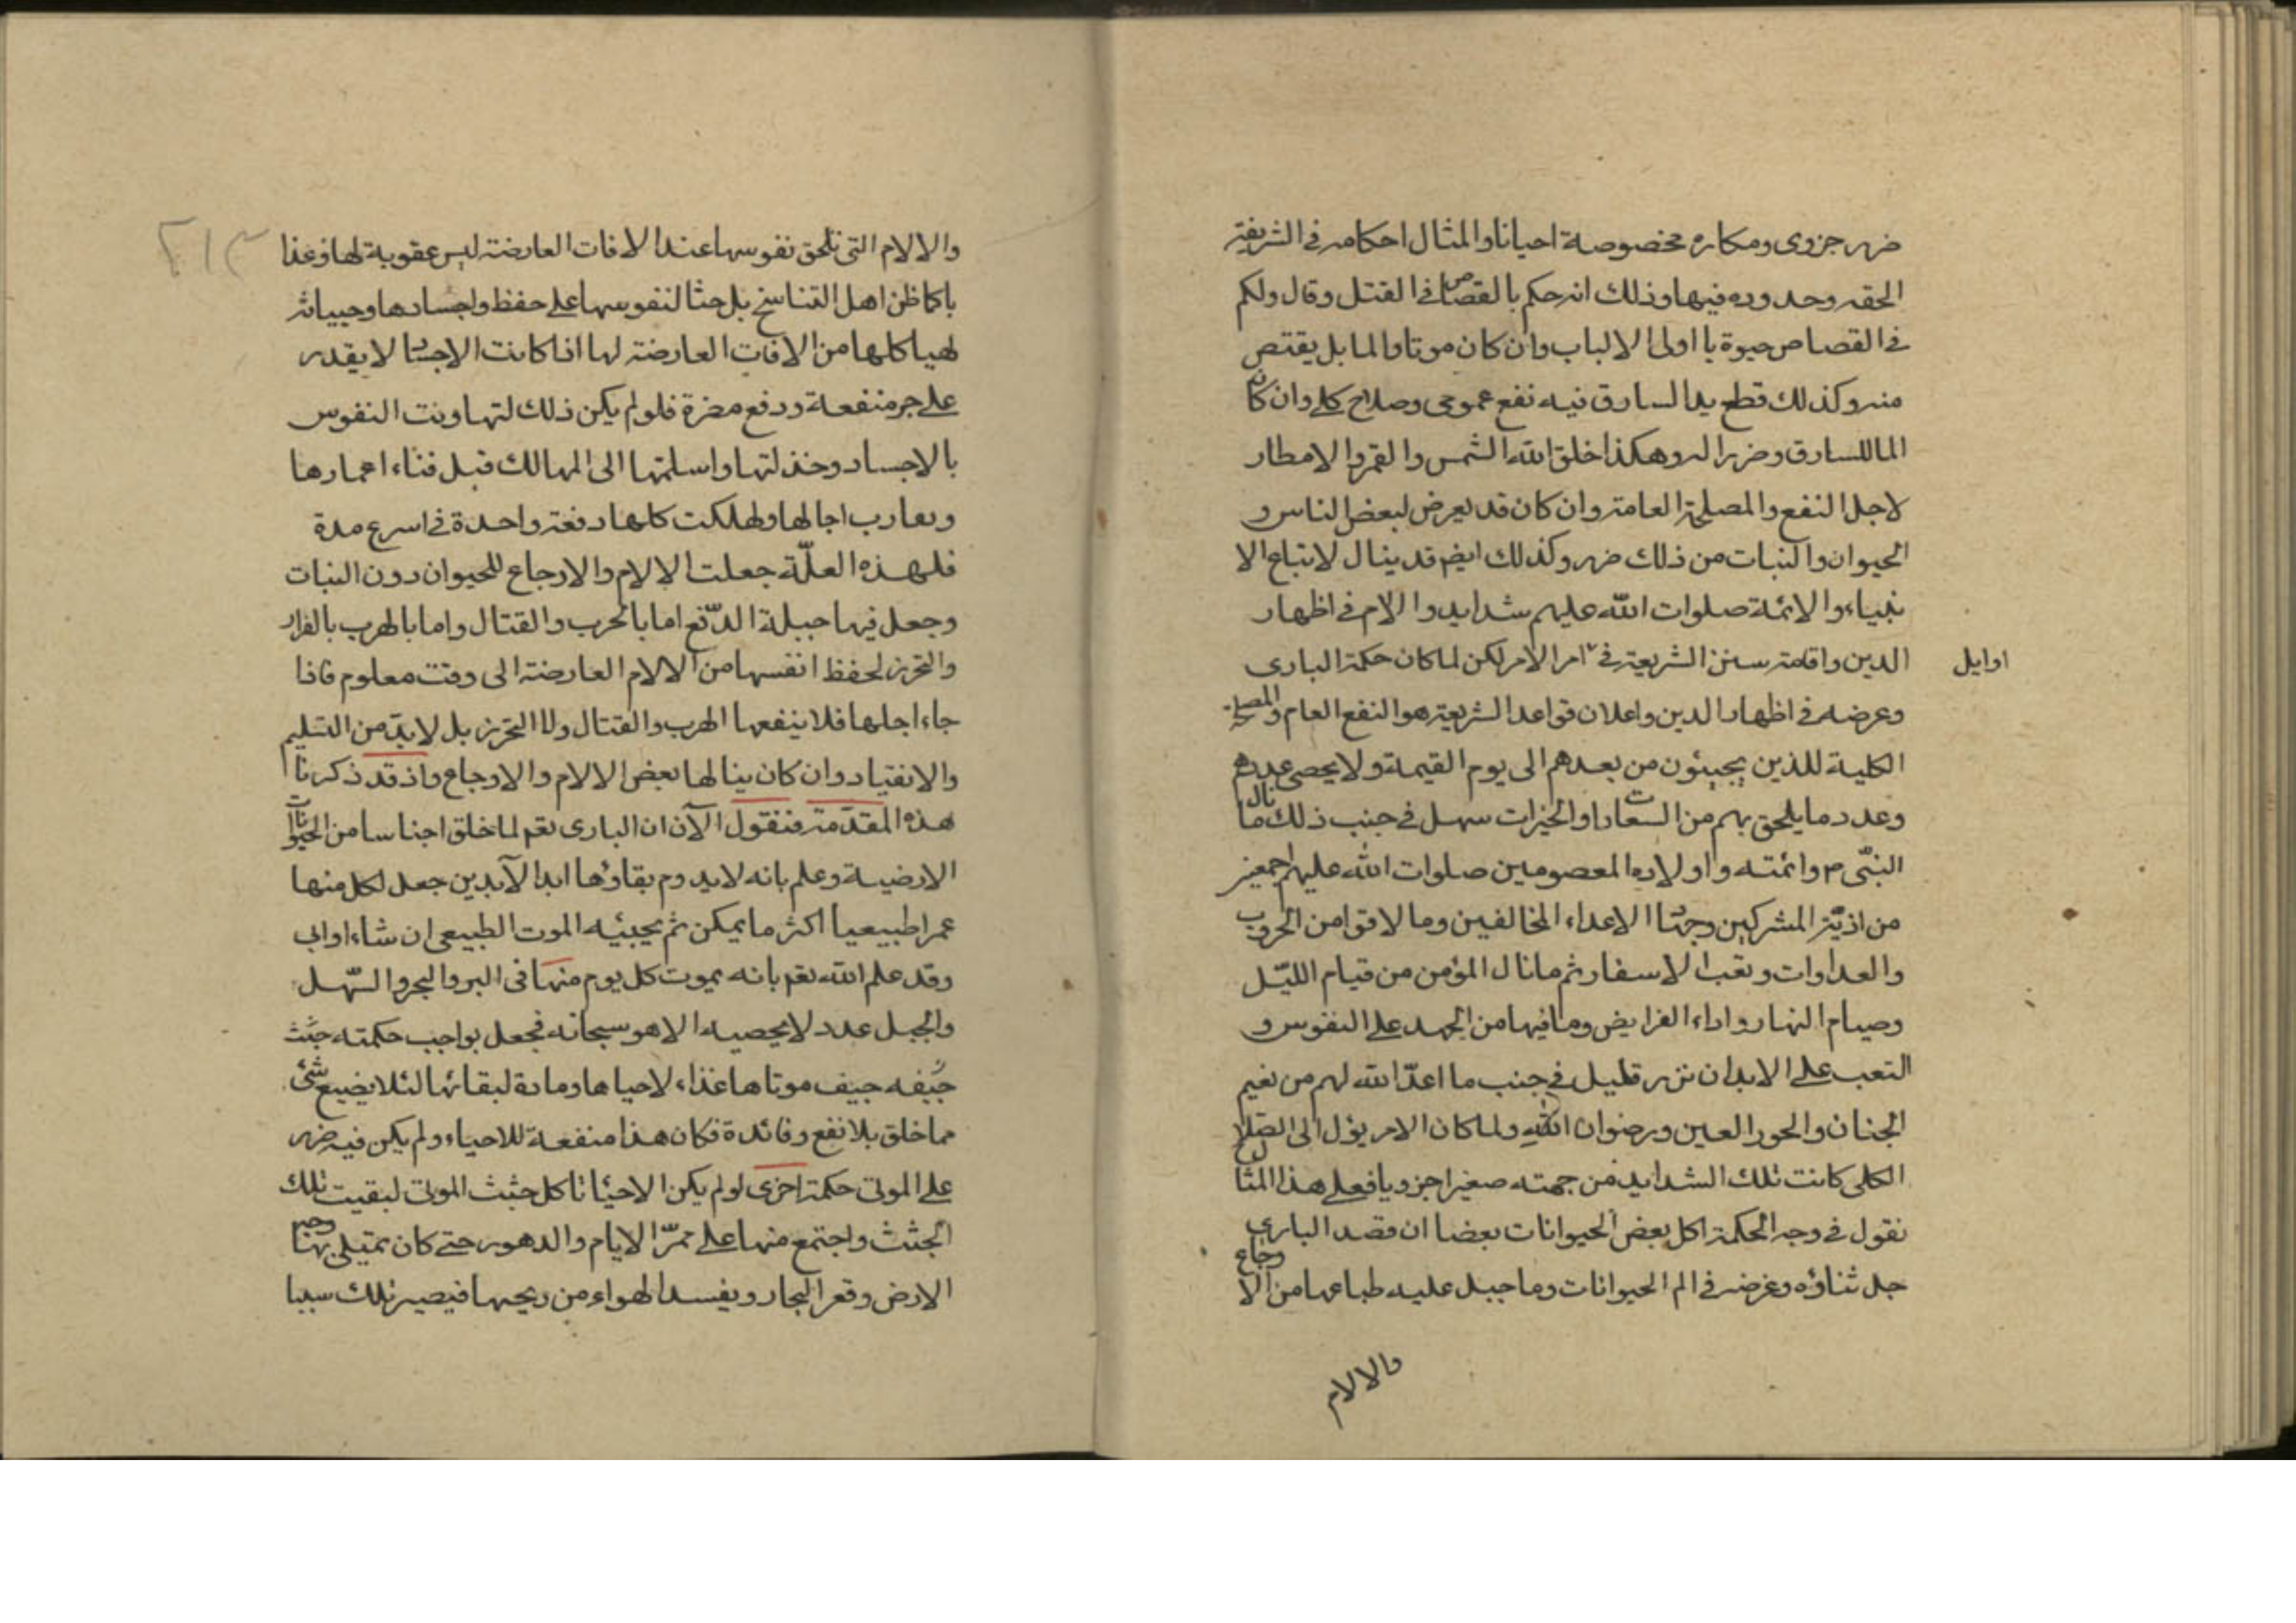 ضرر جزوى ومكاره مخصوصة احيانا والمثال احكامه فى الشريعة
الحقه وحدوده فيها وذلك انه حكم بالقصاص فى القتل وقال ولكم
فى القصاص حيوة يا اولى الالباب وان كان موتا والما بل يقتص
منه وكذلك قطع يد السارق فيه نفع عمومى وصلاح كلى وان كان
الما للسارق وضررا له وهكذا خلق الله الشمس والقمر والامطار
لاجل النفع والمصلحة العامة وان كان قد يعرض لبعض الناس و
الحيوان والنبات من ذلك ضرر وكذلك ايضم قد ينال لاتباع الا
نبياء والائمة صلوات الله عليهم شدايد والالام فى اظهار
الدين واقامة سنن الشريعة فى امر الامر لكن لما كان حكمة البارى
اوايل
وغرضه فى اظهار الدين واعلان قواعد الشريعة هو النفع العام والمصلحة
الكلية للذين يجيئون من بعدهم الى يوم القيمة ولا يحصى عددهم
وعدد ما يلحق بهم من السعادات والخيرات سهل فى جنب ذلك ما نال
النبى م وائمته واولاده المعصومين صلوات الله عليهم اجمعين
من اذية المشركين وجهاد الاعداء المخالفين وما لاقوا من الحروب
والعداوات وتعب الاسفار ثم ما نال المؤمن من قيام الليل
وصيام النهار واداء الفرايض وما فيها من الجهد على النفوس و
التعب على الابدان نزر قليل فى جنب ما اعد الله لهم من نعيم
الجنان والحور العين ورضوان الله ولما كان الامر يؤل الى الصلاح
الكلى كانت تلك الشدايد من جهته صغيرا جزويا فعلى هذا المثال
نقول فى وجه الحكمة اكل بعض الحيوانات بعضا ان قصد البارى
جل ثناؤه وغرضه فى الم الحيوانات وما جبل عليه طباعها من الاوجاع
والالام
والالام التى تلحق نفوسها عند الافات العارضة ليس عقوبة لها وعذا
با كما ظن اهل التناسخ بل حثا لنفوسها على حفظ واجسادها وجبيانه
لهياكلها من الافات العارضة لها اذا كانت الاجساد لا يقدر
على جر منفعة ودفع مضرة فلو لم يكن ذلك لتهاونت النفوس
بالاجساد وخذلتها واسلمتها الى المهالك قبل فناء اعمارها
وتعارب اجالها ولهلكت كلها دفعة واحدة فى اسرع مدة
فلهذه العلّة جعلت الالام والاوجاع للحيوان دون النبات
وجعل فيها جبلة الدّفع اما بالحرب والقتال واما بالهرب بالفرار
والتحرز لحفظ انفسها من الالام العارضة الى وقت معلوم فاذا
جاء اجلها فلا ينفعها الهرب والقتال ولا التحرز بل لا بدّ من التسليم
والانقياد وان كان ينالها بعض الالام والاوجاع واذ قد ذكرنا
هذه المقدّمة فنقول الآن ان البارى تعم لما خلق اجناسا من الحيوانات
الارضية وعلم بانه لا يدوم بقاؤها ابد الآبدين جعل لكل منها
عمرا طبيعيا اكثر ما يمكن ثم يجيئه الموت الطبيعى ان شاء او ابى
وقد علم الله تعم بانه يموت كل يوم منها فى البر والبحر والسّهل
والجبل عدد لا يحصيه الا هو سبحانه فجعل بواجب حكمته جثث
جيفه جيف موتاها غذاء لاحياها ومادة لبقائها لئلا يضيع شئ
مما خلق بلا نفع وفائدة فكان هذا منفعة للاحياء ولم يكن فيه ضرر
على الموتى حكمة اخرى لو لم يكن الاحيا تاكل جثث الموتى لبقيت تلك
الجثث واجتمع منها على ممرّ الايام والدهور حتى كان يمتلى بها وجه
الارض وقعر البحار ويفسد الهواء من ريحها فيصير تلك سببا